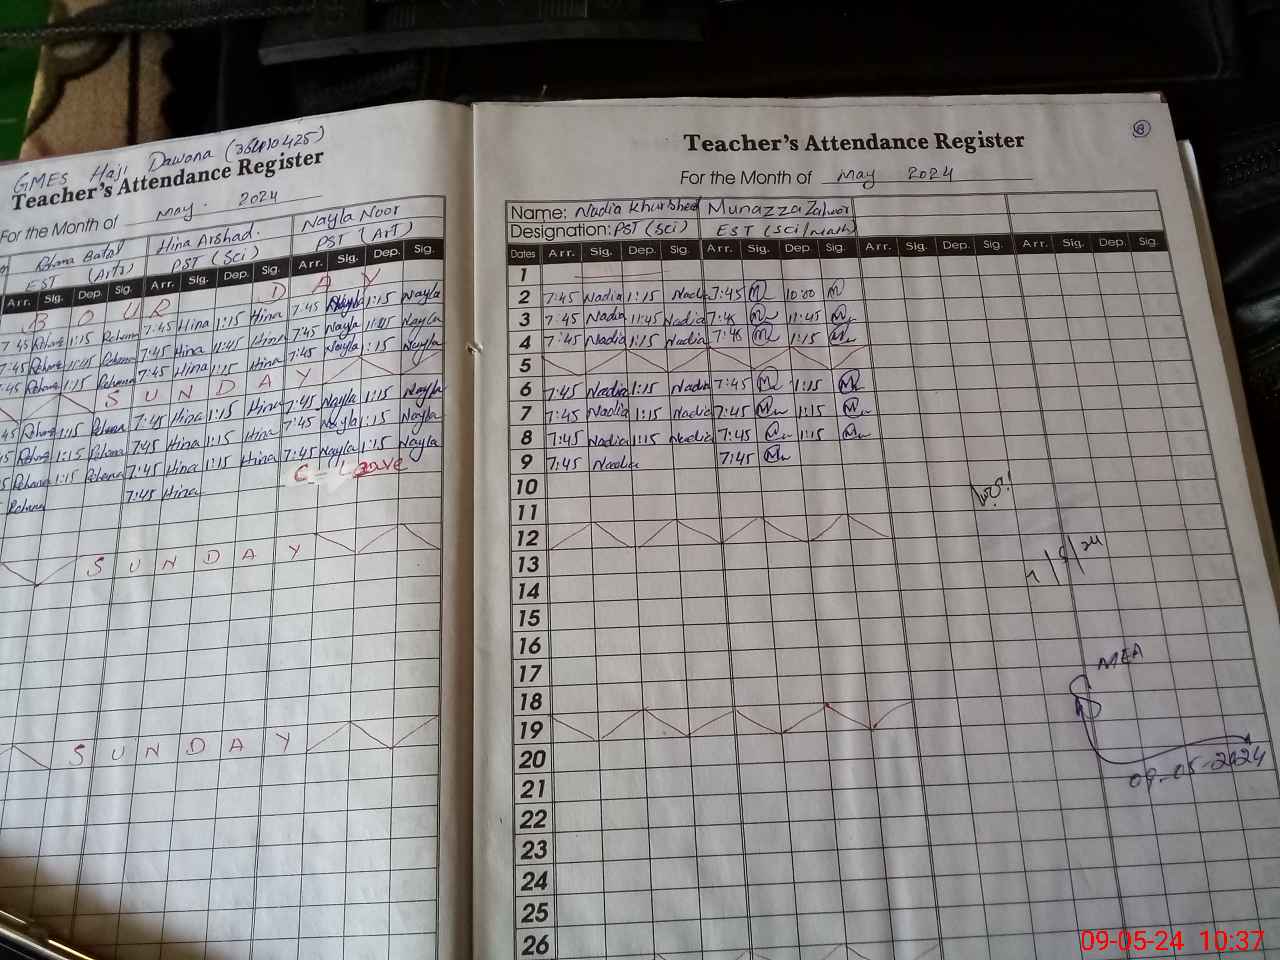 GMES Haji Dawana
Teacher's Attendance Register
For the Month of May. 2024
Hina Arshad. Nayla Noor
(Arts) PST (Sci) PST (ArT)
EST
Arr. Sig. Dep. Sig. Arr. Sig. Dep. Sig. Arr. Sig. Dep. Sig.
L A B O U R D A Y
7:45 1:15 Rehana 7:45 Hina 1:15 Hina 7:45 Nayla 1:15 Nayla
7:45 Rehana 11:45 Rehana 7:45 Hina 11:45 Hina 7:45 Nayla 11:45 Nayla
7:45 Rehana 1:15 Rehana 7:45 Hina Hina 7:45 Nayla 1:15 Nayla
S U N D A Y
:45 Rehana 1:15 Rehana 7:45 Hina 1:15 Hina 7:45 Nayla 1:15 Nayla
Rehana 1:15 Rehana 7:45 Hina 1:15 Hina 7:45 Nayla 1:15 Nayla
Rehana 1:15 Rehana 7:45 Hina 1:15 Hina 7:45 Nayla 1:15 Nayla
Rehana 7:45 Hina C = Leave
S U N D A Y
S U N D A Y
Teacher's Attendance Register
For the Month of May 2024
Name: Nadia Khurshed Munazza Zahoor
Designation: PST (Sci) EST (Sci/math)
Dates Arr. Sig. Dep. Sig. Arr. Sig. Dep. Sig. Arr. Sig. Dep. Sig. Arr. Sig. Dep. Sig.
1
2 7:45 Nadia 1:15 Nadia 7:45 10:00
3 7:45 Nadia 11:45 Nadia 7:45 11:45
4 7:45 Nadia 1:15 Nadia 7:45 1:15
5
6 7:45 Nadia 1:15 Nadia 7:45 1:15
7 7:45 Nadia 1:15 Nadia 7:45 1:15
8 7:45 Nadia 1:15 Nadia 7:45 1:15
9 7:45 Nadia 7:45
10
11
12
13
14
15
16
17
18
19
20
21
22
23
24
25
26
MEA
09-05-2024
09-05-24 10:37